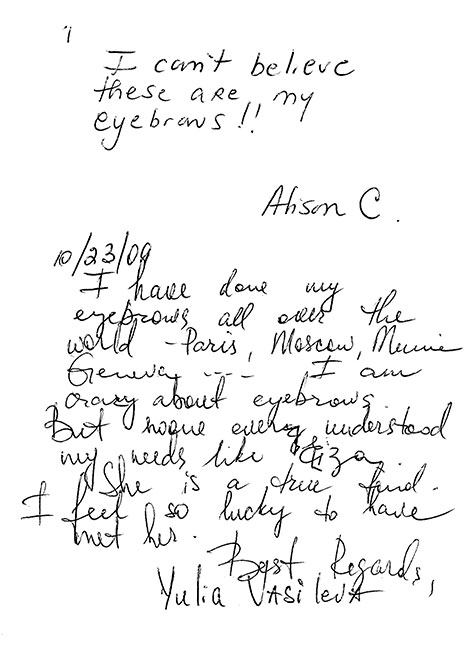 I can't believe
these are my
eyebrows!!
Alison C.
10/23/09
I have done my
eyebrows all over the
world - Paris, Moscow,
Geneva ---- I am
crazy about eyebrows.
But noone every understood
my needs like Eliza.
She is a true find.
I feel so lucky to have
met her.
Best Regards,
Yulia VASileVA